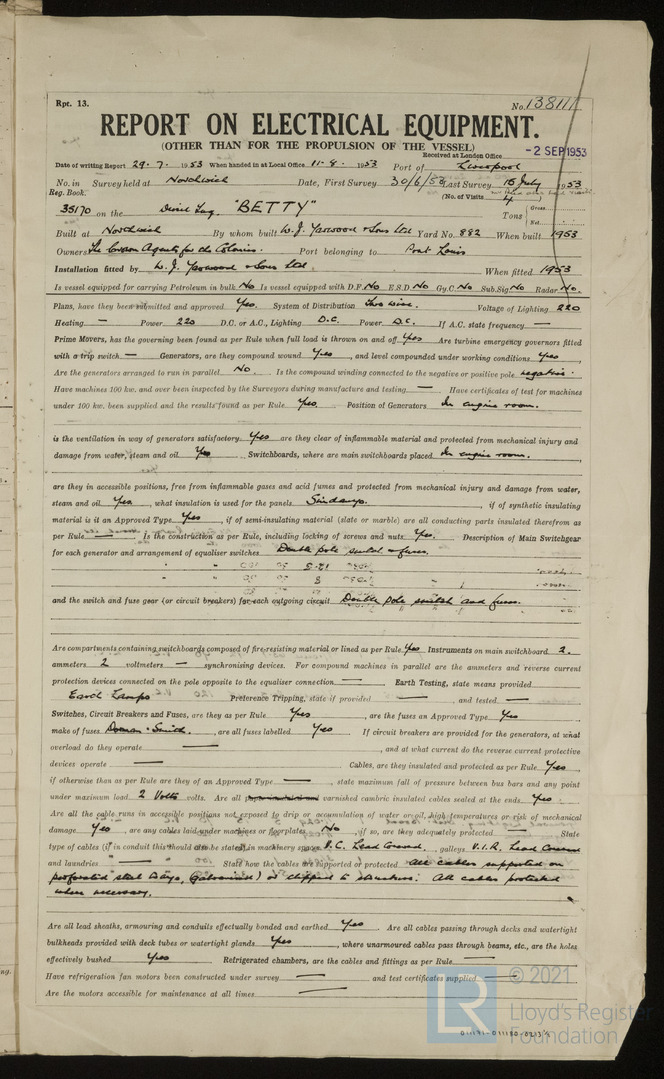 Rpt. 13. No. 13811
REPORT ON ELECTRICAL EQUIPMENT.
(OTHER THAN FOR THE PROPULSION OF THE VESSEL)
Received at London Office -2 SEP 1953
Date of writing Report 29.7.1953 When handed in at Local Office 11.8.1953 Port of Liverpool
No. in Survey held at Northwich Date, First Survey 30/6/53 Last Survey 15 July 1953
Reg. Book. (No. of Visits 4)
35170 on the Diesel Tug "BETTY" Tons Gross Net
Built at Northwich By whom built W. J. Yarwood & Sons Ltd Yard No. 882 When built 1953
Owners The Crown Agents for the Colonies. Port belonging to Port Louis
Installation fitted by W. J. Yarwood & Sons Ltd. When fitted 1953
Is vessel equipped for carrying Petroleum in bulk No Is vessel equipped with D.F. No E.S.D No Gy.C No Sub.Sig No Radar No.
Plans, have they been submitted and approved Yes. System of Distribution Two wire. Voltage of Lighting 220
Heating — Power 220 D.C. or A.C., Lighting D.C. Power D.C. If A.C. state frequency —
Prime Movers, has the governing been found as per Rule when full load is thrown on and off Yes Are turbine emergency governors fitted
with a trip switch — Generators, are they compound wound Yes, and level compounded under working conditions Yes,
Are the generators arranged to run in parallel No. Is the compound winding connected to the negative or positive pole negative.
Have machines 100 kw. and over been inspected by the Surveyors during manufacture and testing — Have certificates of test for machines
under 100 kw. been supplied and the results found as per Rule Yes Position of Generators In engine room.
is the ventilation in way of generators satisfactory Yes are they clear of inflammable material and protected from mechanical injury and
damage from water, steam and oil Yes Switchboards, where are main switchboards placed In engine room.
are they in accessible positions, free from inflammable gases and acid fumes and protected from mechanical injury and damage from water,
steam and oil Yes, what insulation is used for the panels Sindanyo., if of synthetic insulating
material is it an Approved Type Yes, if of semi-insulating material (slate or marble) are all conducting parts insulated therefrom as
per Rule — Is the construction as per Rule, including locking of screws and nuts Yes. Description of Main Switchgear
for each generator and arrangement of equaliser switches Double pole switch & fuses.
and the switch and fuse gear (or circuit breakers) for each outgoing circuit Double pole switch and fuses.
Are compartments containing switchboards composed of fire-resisting material or lined as per Rule Yes Instruments on main switchboard 2.
ammeters 2 voltmeters — synchronising devices. For compound machines in parallel are the ammeters and reverse current
protection devices connected on the pole opposite to the equaliser connection — Earth Testing, state means provided
Earth Lamps Preference Tripping, state if provided —, and tested —
Switches, Circuit Breakers and Fuses, are they as per Rule Yes, are the fuses an Approved Type Yes
make of fuses Dorman & Smith., are all fuses labelled Yes If circuit breakers are provided for the generators, at what
overload do they operate —, and at what current do the reverse current protective
devices operate — Cables, are they insulated and protected as per Rule Yes,
if otherwise than as per Rule are they of an Approved Type —, state maximum fall of pressure between bus bars and any point
under maximum load 2 Volts volts. Are all varnished cambric insulated cables sealed at the ends Yes
Are all the cable runs in accessible positions not exposed to drip or accumulation of water or oil, high temperatures or risk of mechanical
damage Yes, are any cables laid under machines or floorplates No, if so, are they adequately protected — State
type of cables (if in conduit this should also be stated) in machinery spaces V.C. Lead Covered, galleys V.I.R. Lead Covered
and laundries — State how the cables are supported or protected All cables supported on
perforated steel trays, (galvanised) or clipped to structure. All cables protected
where necessary.
Are all lead sheaths, armouring and conduits effectually bonded and earthed Yes Are all cables passing through decks and watertight
bulkheads provided with deck tubes or watertight glands Yes, where unarmoured cables pass through beams, etc., are the holes
effectively bushed Yes Refrigerated chambers, are the cables and fittings as per Rule —
Have refrigeration fan motors been constructed under survey — and test certificates supplied —
Are the motors accessible for maintenance at all times —
© 2021
LR Lloyd's Register
Foundation
011191-011180-0213½